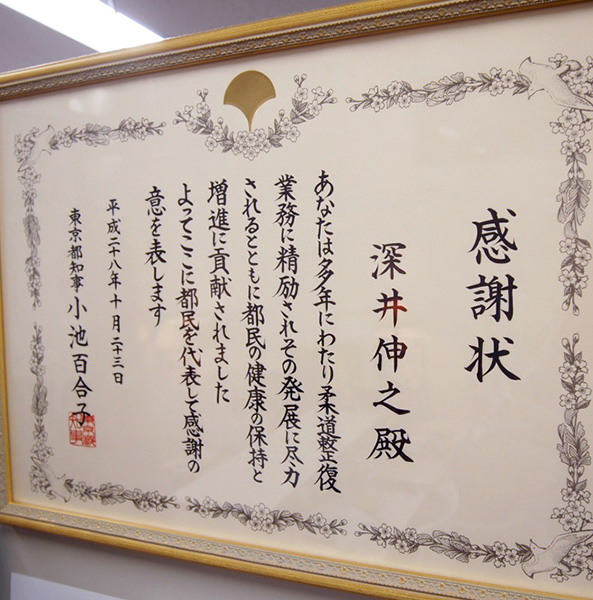 感謝状
深井伸之殿
あなたは多年にわたり柔道整復
業務に精励されその発展に尽力
されるとともに都民の健康の保持と
増進に貢献されました
よってここに都民を代表して感謝の
意を表します
平成二十八年十月二十三日
東京都知事 小池百合子